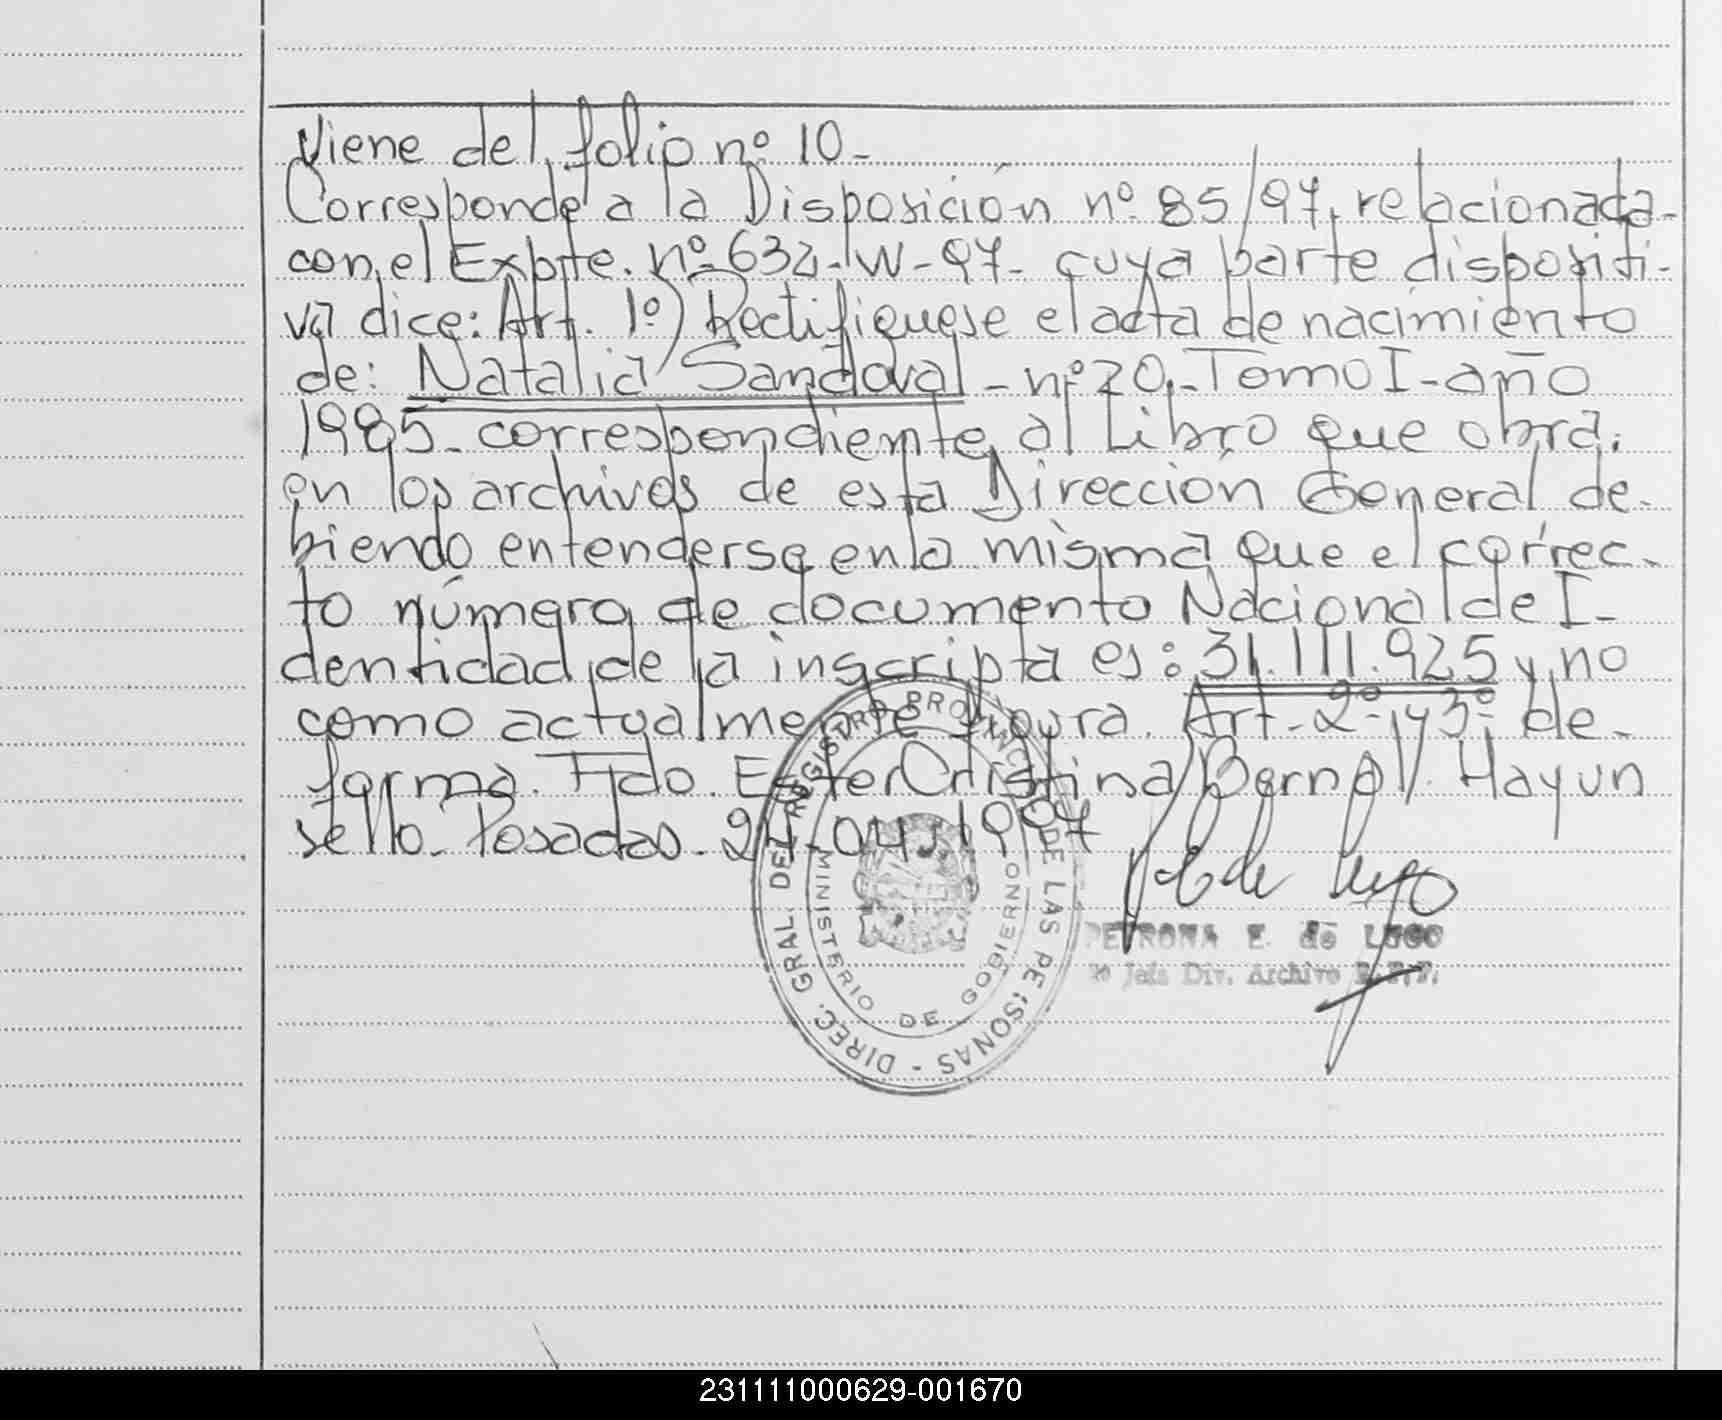 Viene del folio nº 10-
Corresponde a la Disposición nº 85/97, relacionada-
con el Expte. nº 632-W-97- cuya parte dispositi-
va dice: Art. 1º) Rectifiquese el acta de nacimiento
de: Natalia Sandoval - nº 20,-Tomo I-año
1985- correspondiente al Libro que obra.
en los archivos de esta Dirección General de-
biendo entenderse en la misma que el correc-
to número de documento Nacional de I-
dentidad de la inscripta es: 31.111.925 y no
como actualmente figura. Art-2º-y 3º de-
forma. Fdo. Ester Cristina Bernal/. Hay un
sello. Posadas. 24-04-1997
DIREC. GRAL. DEL REGISTRO PROVINCIAL DE LAS PERSONAS -
MINISTERIO DE GOBIERNO
P. E. de Lugo
PETRONA E. de LUGO
Jefa Div. Archivo R.P.P.
231111000629-001670